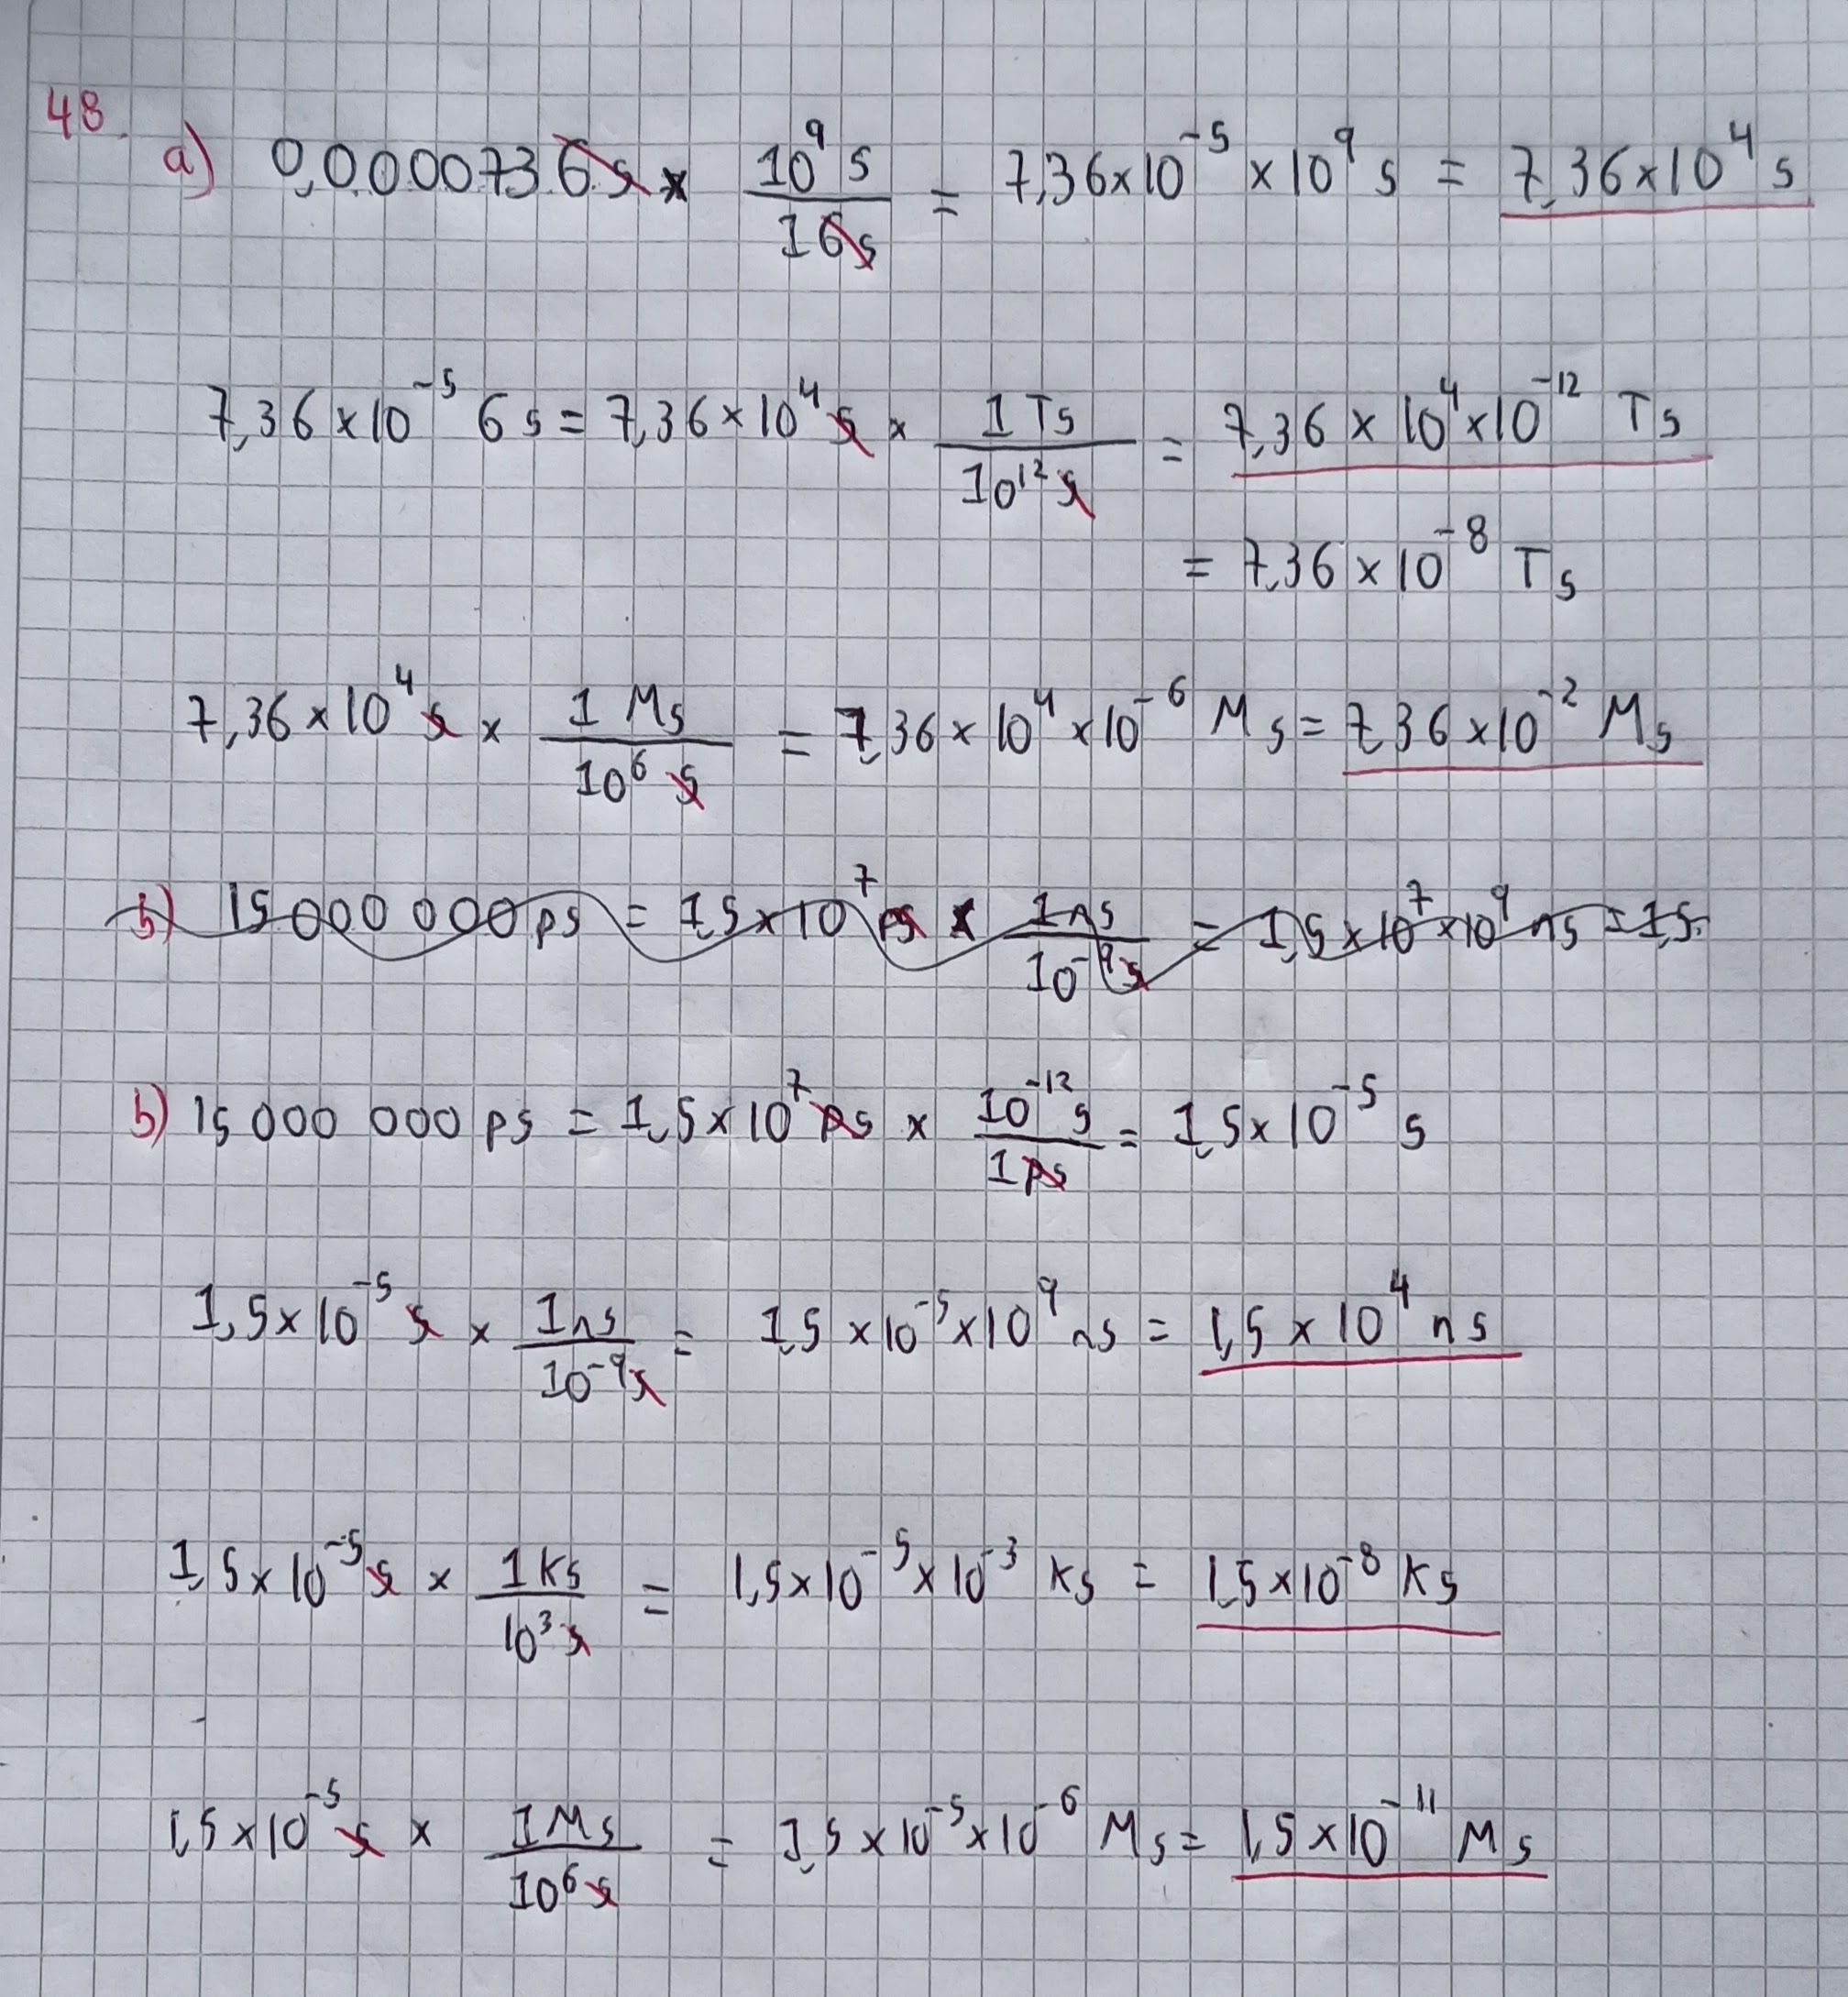 48.
a) 0,0000736s × 10⁹ s / 16s = 7,36×10⁻⁵ ×10⁹ s = 7,36×10⁴ s
7,36×10⁻⁵ 6s = 7,36×10⁴ s × 1 Ts / 10¹² s = 7,36 × 10⁴×10⁻¹² Ts
= 7,36 ×10⁻⁸ Ts
7,36×10⁴ s × 1 Ms / 10⁶ s = 7,36× 10⁴ ×10⁻⁶ Ms = 7,36×10⁻² Ms
b) 15 000 000 ps = 1,5×10⁷ ps × 1ns / 10⁻⁹s = 1,5×10⁷×10⁹ ns = 1,5
b) 15 000 000 ps = 1,5×10⁷ ps × 10⁻¹² s / 1ps = 1,5×10⁻⁵ s
1,5×10⁻⁵ s × 1ns / 10⁻⁹s = 1,5 ×10⁻⁵×10⁹ ns = 1,5 × 10⁴ ns
1,5×10⁻⁵ s × 1Ks / 10³ s = 1,5×10⁻⁵×10⁻³ Ks = 1,5×10⁻⁸ Ks
1,5×10⁻⁵ s × 1Ms / 10⁶ s = 1,5 ×10⁻⁵×10⁻⁶ Ms = 1,5×10⁻¹¹ Ms